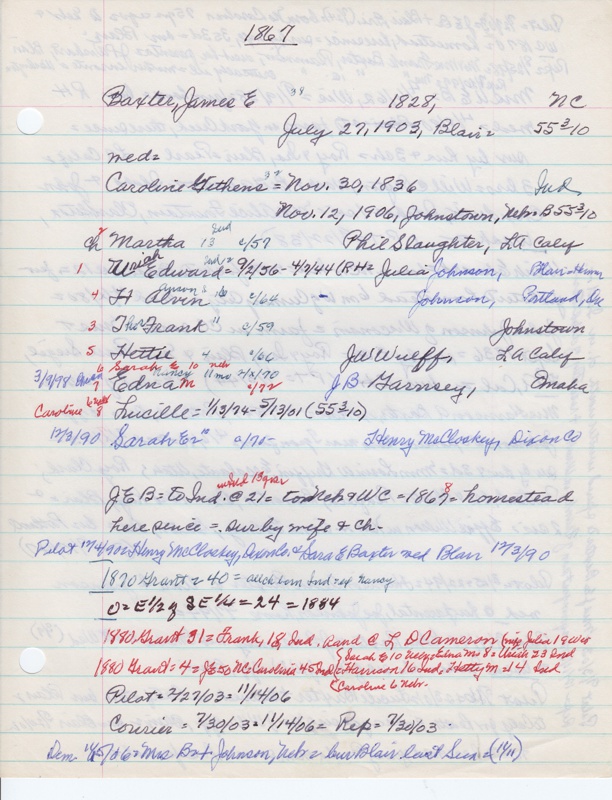 1867
Baxter, James E 39 1828, NC
July 27, 1903, Blair = 55 3/10
med =
Caroline Gethens = Nov. 30, 1836 Ind
Nov. 12, 1906, Johnstown, Neb = B 55 3/10
ch 2 Martha 13 Ind c/57 Phil Slaughter, LA Caly
1 Uriah Edward = 9/2/56 - 4/3/44 (RH = Julia Johnson, Blair
4 H Alvin c/64 - Johnson, Portland,
3 Thos Frank 11 c/59 Johnstown
5 Hettie 4 c/66 JW Wulff, LA Caly
6 Sarah E 10 neb
3/9/98 7 Edna M Nancy 11 mo c/72 J.B. Garnsey, Omaha
Caroline 6 neb 8 Lucille = 1/13/74 - 5/13/01 (55 3/10)
12/3/90 Sarah E c/70 - Henry McCloskey, Dixon Co
J E B = to Ind. @ 21 = to Neb & WC = 1867 8 = homestead
here since = sur by wife & ch -
Pilot 12/4/90 = Henry McCloskey, & Sara E Baxter med Blair 12/3/90
1870 Grant = 40 = all ch born Ind ex Nancy
O = E 1/2 of SE 1/4 = 24 = 1884
1880 Grant 31 = Frank, 18, Ind. R and C L D Cameron (wife Julia 19 Wis
Sarah E 10 Neb Edna M 8 = Uriah 23 Ind
1880 Grant = 4 = JE 50 NC Caroline 45 Ind Harrison 16 Ind, Hetty M = 14 Ind
Caroline 6 Nebr.
Pilot = 2/27/03 = 11/14/06
Courier = 7/30/03 = 11/14/06 = Rep = 7/30/03.
Dem 11/15/06 = Mrs Bxt Johnson, Neb = bur Blair last Sun = (11/11)